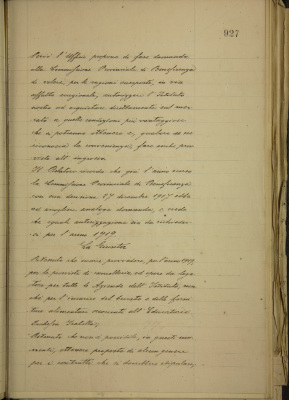 927
Perciò l'Ufficio propone di fare domanda
alla Commissione Provinciale di Beneficenza
di volere, per le ragioni esposte, in via
affatto eccezionale, autorizzare l'Istituto
nostro ad acquistare direttamente sul mer-
cato a quelle condizioni più vantaggiose
che si potranno ottenere e, qualora se ne
riconosca la convenienza, fare anche prov-
viste all'ingrosso.
Il Relatore ricorda che già l'anno scorso
la Commissione Provinciale di Beneficenza
con sua decisione 17 dicembre 1917 ebbe
ad accogliere analoga domanda, e crede
che eguale autorizzazione sia da richieder-
si per l'anno 1919
La Giunta
Ritenuto che occorre provvedere, per l'anno 1919,
per le provviste di cancelleria, ed opere da lega-
tore per tutte le Aziende dell'Istituto, non
che per l'esercizio del baliatico e delle forni-
ture alimentari occorrenti all'Educatorio
Ritenuto che non è possibile, in questi mo-
menti, ottenere proposte di alcun genere
per i contratti che si dovrebbero stipulare,